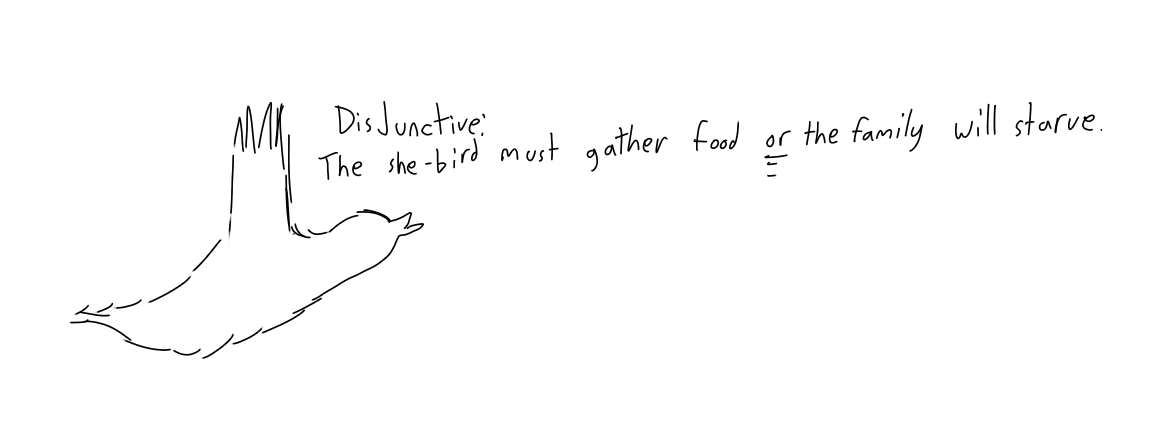 DisJunctive:
The she-bird must gather food or the family will starve.